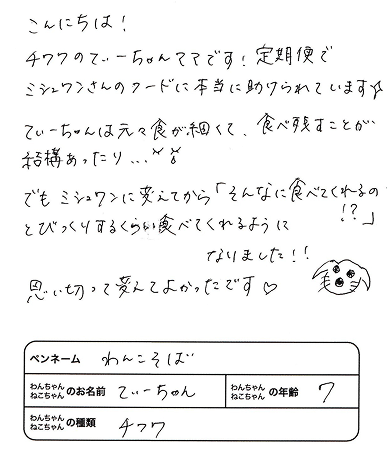 こんにちは!
チワワのてぃーちゃんママです!定期便で
ミシュワンさんのフードに本当に助けられています☆
てぃーちゃんは元々食が細くて、食べ残すことが
結構あったり...
でも ミシュワンに変えてから「そんなに食べてくれるの!?」
とびっくりするくらい食べてくれるように
なりました!!
思い切って変えてよかったです♡
ペンネーム わんこそば
わんちゃん ねこちゃん のお名前 てぃーちゃん わんちゃん ねこちゃん の年齢 7
わんちゃん ねこちゃん の種類 チワワ